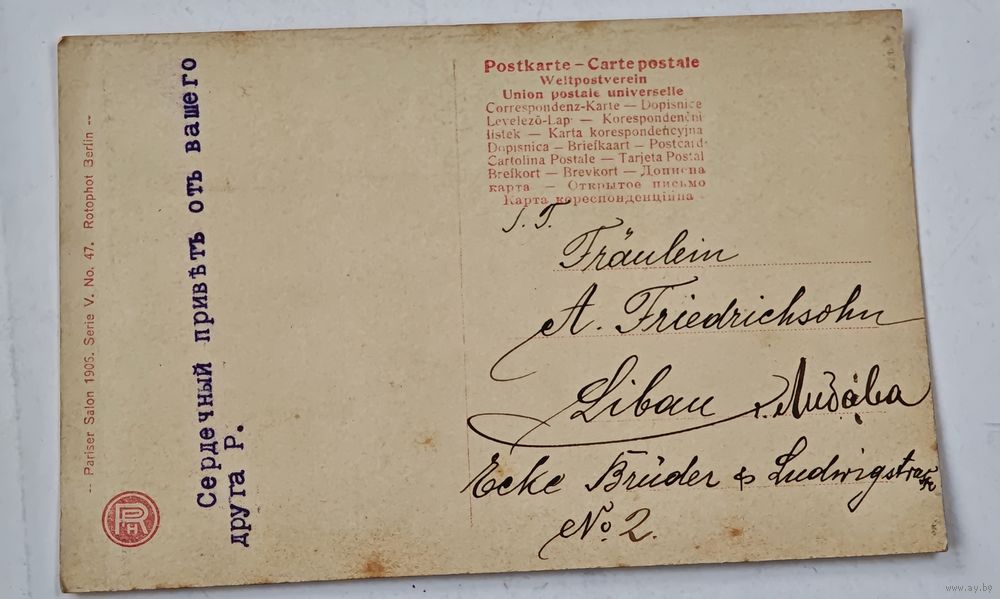 -- Pariser Salon 1906. Serie V. No. 47. Rotophot Berlin --
RPH
Сердечный привѣтъ отъ вашего
друга Р.
Postkarte – Carte postale
Weltpostverein
Union postale universelle
Correspondenz-Karte — Dopisnice
Levelezõ-Lap — Korespondenčni
listek — Karta korespondencyjna
Dopisnica — Briefkaart — Postcard
Cartolina Postale — Tarjeta Postal
Brefkort — Brevkort — Дописна
карта — Открытое письмо
Карта кореспонденцiйна
Fräulein
A. Friedrichsohn
Libau Либава
Ecke Brüder & Ludwigstrasse
No. 2.
www.ay.by